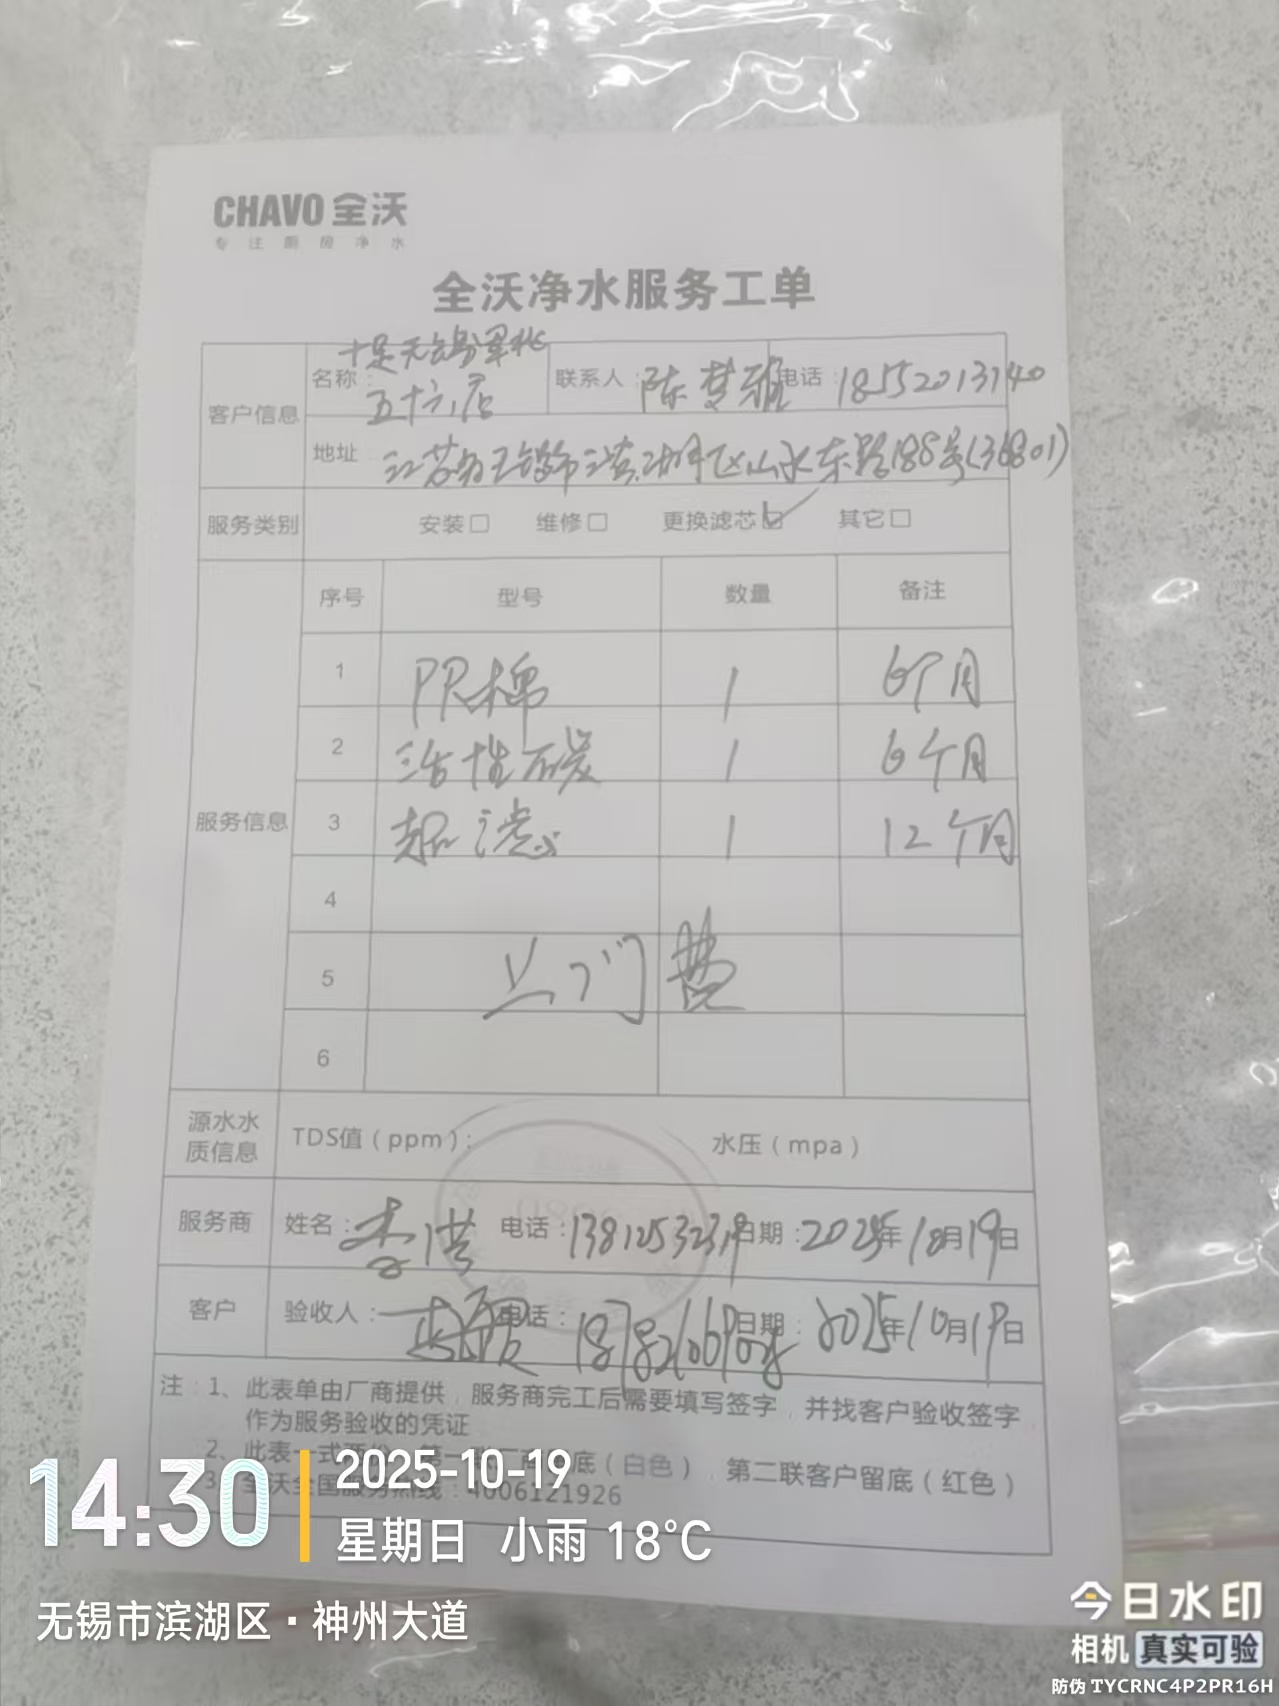 CHAVO 全沃
专注厨房净水
全沃净水服务工单
客户信息 名称: 十足无锡军北五十六店 联系人: 陈梦雅 电话: 18552013140
地址 江苏省无锡市滨湖区山水东路188号(36801)
服务类别 安装□ 维修□ 更换滤芯☑ 其它□
服务信息 序号 型号 数量 备注
1 PP棉 1 6个月
2 活性碳 1 6个月
3 超滤 1 12个月
4
5 上门费
6
源水水质信息 TDS值(ppm): 水压(mpa)
服务商 姓名: 李洪 电话: 日期: 2025年10月19日
客户 验收人: 电话: 日期: 2025年10月19日
注:1、此表单由厂商提供,服务商完工后需要填写签字,并找客户验收签字
作为服务验收的凭证
2、此表一式两份,第一联厂商留底(白色),第二联客户留底(红色)
3、全沃全国服务热线:4006121926
14:30
2025-10-19
星期日 小雨 18°C
无锡市滨湖区·神州大道
今日水印
相机 真实可验
防伪 TYCRNC4P2PR16H